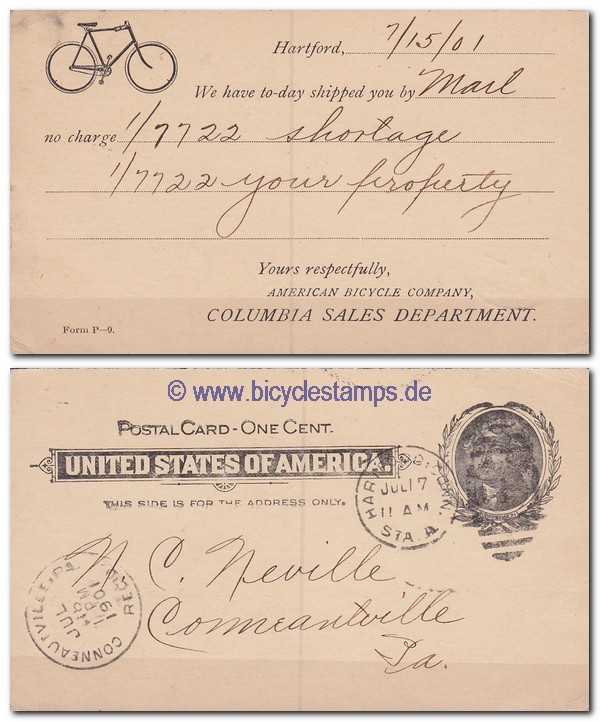 Hartford, 7/15/01
We have to-day shipped you by Mail
no charge 1/7722 shortage
1/7722 your property
Yours respectfully,
AMERICAN BICYCLE COMPANY,
COLUMBIA SALES DEPARTMENT.
Form P—9.
© www.bicyclestamps.de
POSTAL CARD - ONE CENT.
UNITED STATES OF AMERICA.
THIS SIDE IS FOR THE ADDRESS ONLY.
JUL 17
11 AM
STA. A
N. C. Neville
Conneantville
Pa.
CONNEAUTVILLE, PA
REC'D
JUL
PM
1901